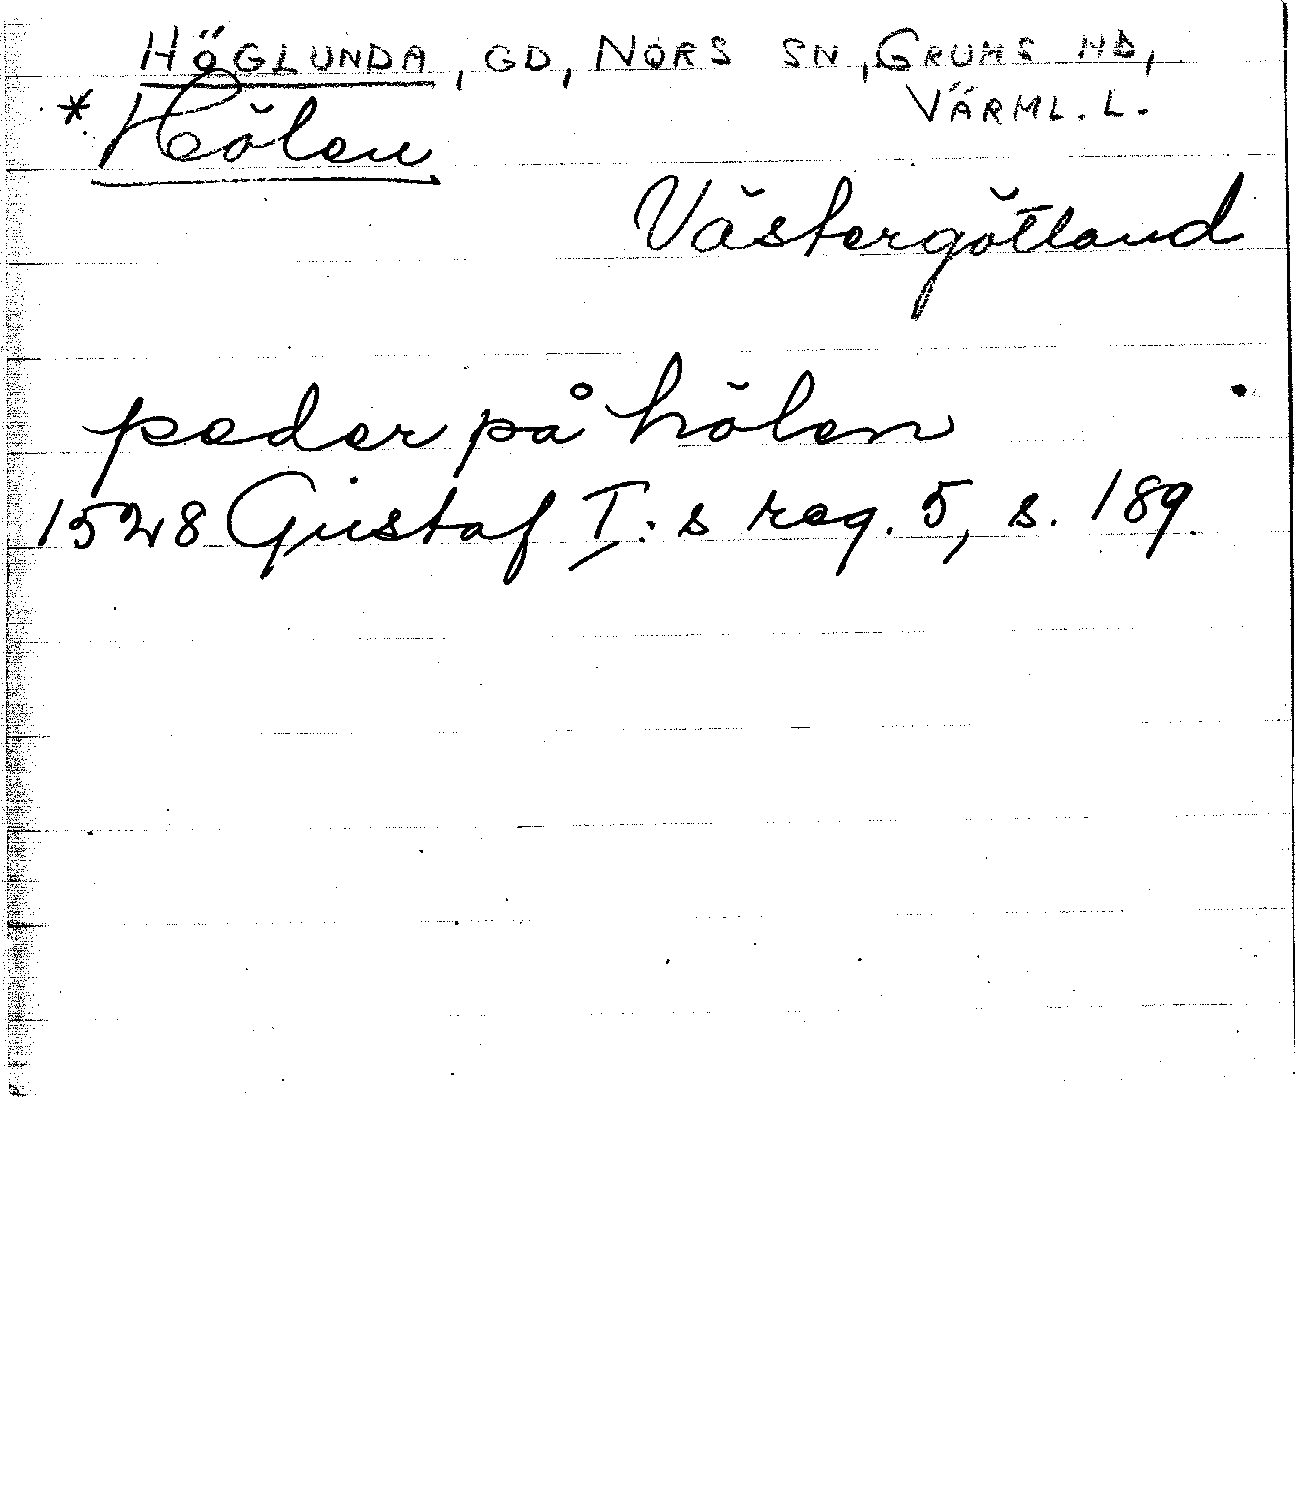 HÖGLUNDA, GD, NORS SN, GRUMS HD,
VÄRML. L.
* Hölen
Västergötland
peder på hölen
1528 Gustaf I:s reg. 5, s. 189.